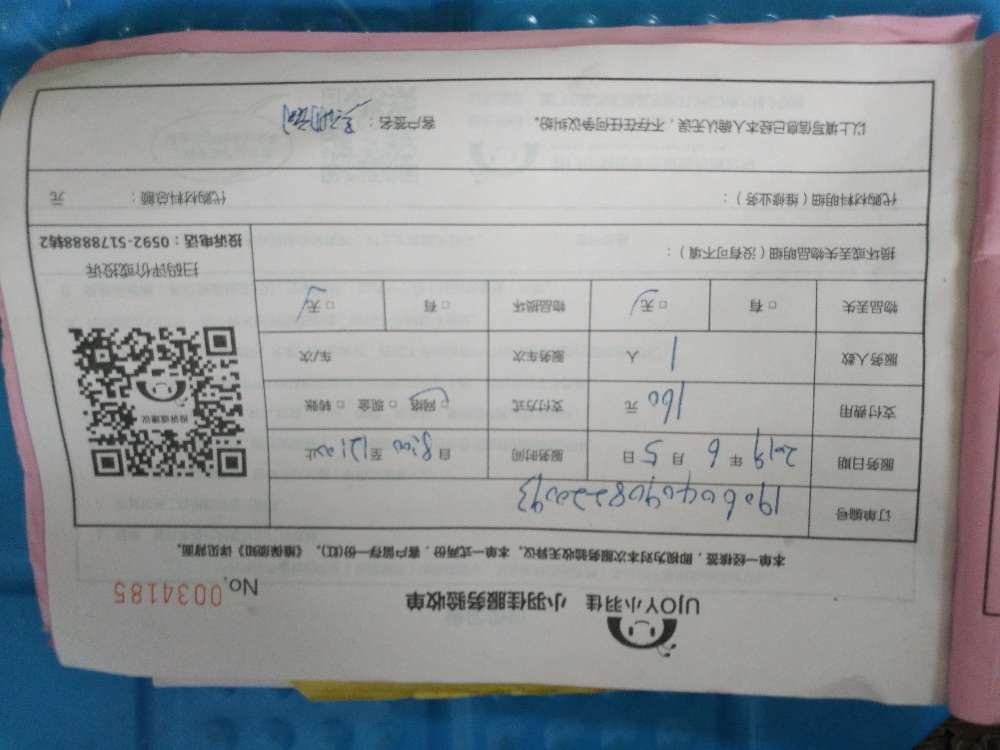 UJOY小羽佳 小羽佳服务验收单
No. 0034185
本单一经接签，即视为对本次服务验收无异议。本单一式两份，客户留存一份(红)。《维保须知》详见背面。
订单编号 190604090822093
服务日期 2019 年 6 月 5 日 服务时间 自 8:00 至 12:00 止
支付费用 160 元 支付方式 □ 网络 □ 现金 □ 转账
服务人数 1 人 服务车次 车/次
物品丢失 □ 有 □ 无 物品损坏 □ 有 □ 无
投诉或建议
扫码评价或投诉
投诉电话：0592-5178888转2
损坏或丢失物品明细（没有可不填）：
代购材料明细（维修业务）： 代购材料总额： 元
以上填写信息已经本人确认无误，不存在任何争议纠纷。 客户签名：